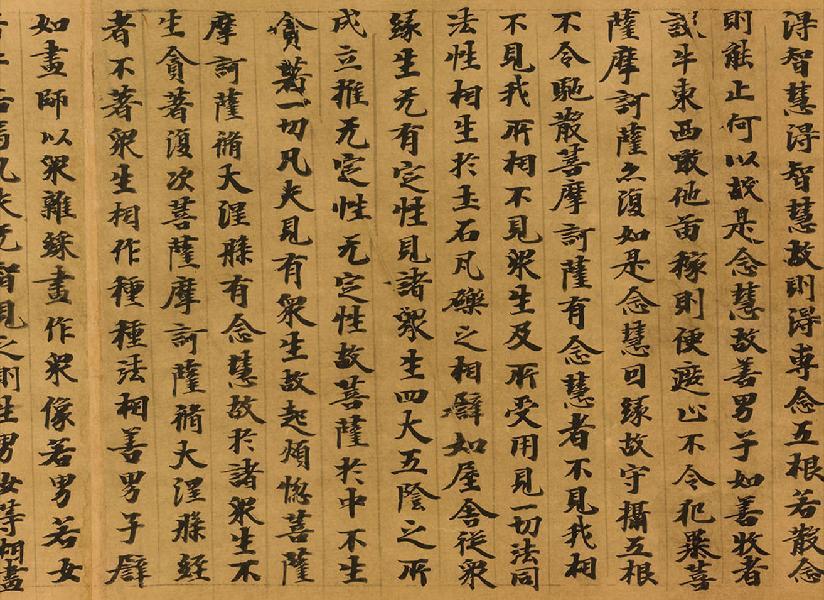 得智慧得智慧故則得專念五根若散念
則能止何以故是念慧故善男子如善牧者
設牛東西噉他苗稼則便遮止不令犯暴菩
薩摩訶薩亦復如是念慧因緣故守攝五根
不令馳散菩摩訶薩有念慧者不見我相
不見我所相不見眾生及所受用見一切法同
法性相生於土石凡礫之相譬如屋舍從眾
緣生无有定性見諸眾生四大五陰之所
成立推无定性无定性故菩薩於中不生
貪著一切凡夫見有眾生故起煩惱菩薩
摩訶薩脩大涅槃有念慧故於諸眾生不
生貪著復次菩薩摩訶薩脩大涅槃經
者不著眾生相作種種法相善男子譬
如畫師以眾雜綵畫作眾像若男若女
凡夫无智見之則生男女等相畫